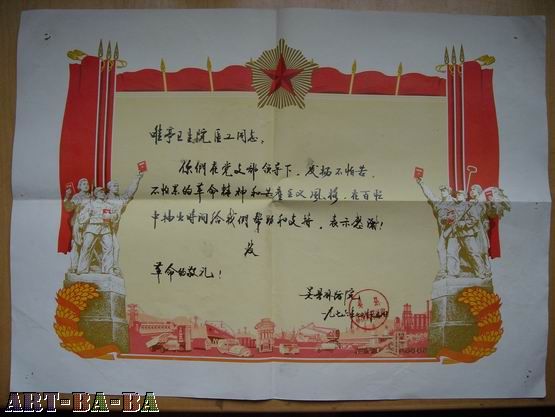 唯亭卫生院医工同志：
你们在党支部领导下，发扬不怕苦、
不怕累的革命精神和共产主义风格，在百忙
中抽出时间给我们帮助和支持，表示感谢！
致
革命的敬礼！
吴县
院
一九七
ART-BA-BA